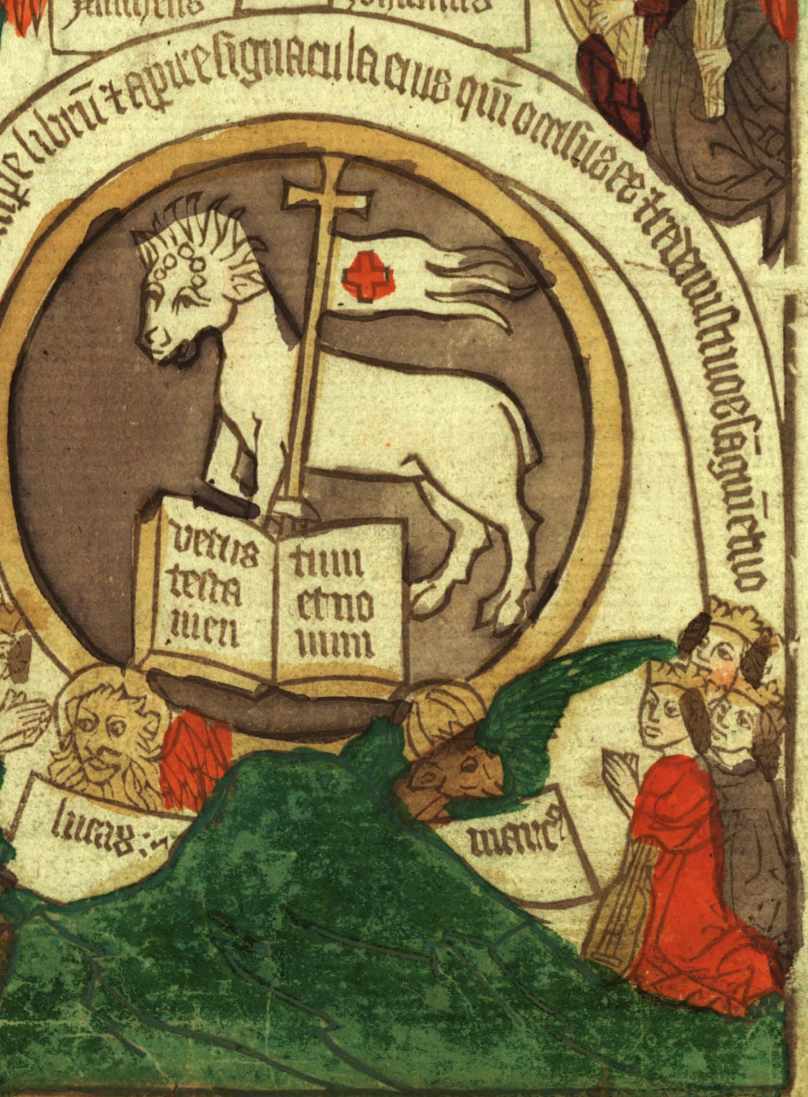 Johannes
librū ⁊ apire signacula eius qm̄ occisus es ⁊ redemisti nos sāguīe tuo
vetus
testa
men
tum
et no
uum
lucas
marcꝰ